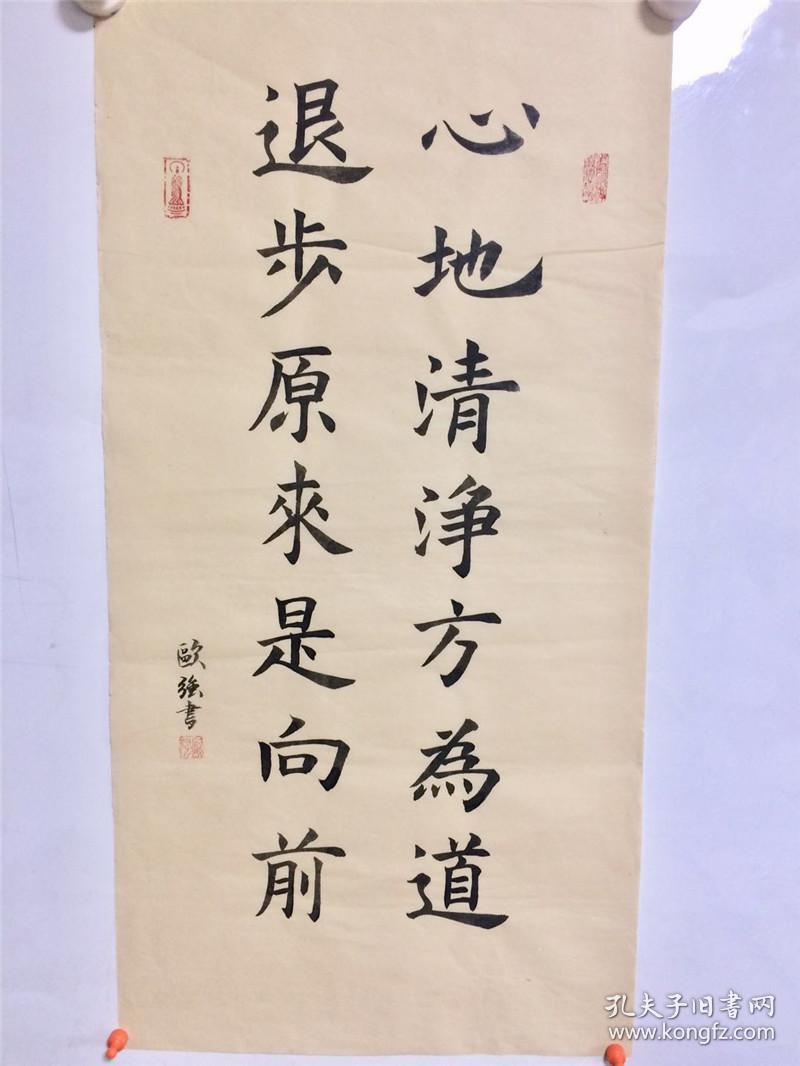 心地清淨方為道
退步原來是向前
歐強書
孔夫子旧書网
www.kongfz.com